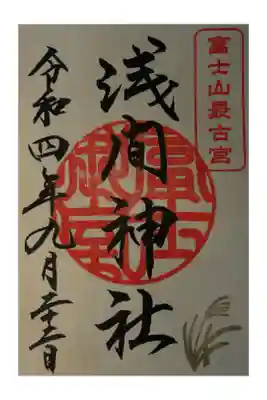 富士山最古宮
浅间神社
令和四年九月二十三日